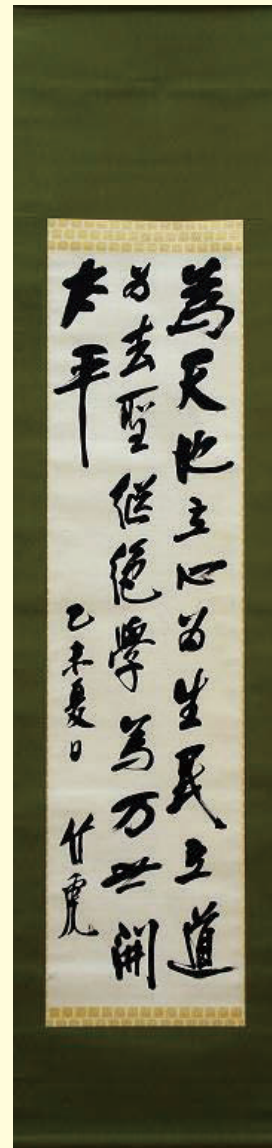 為天地立心为生民立道
为去聖継絶學為万世開
太平
乙未夏日 竹虎